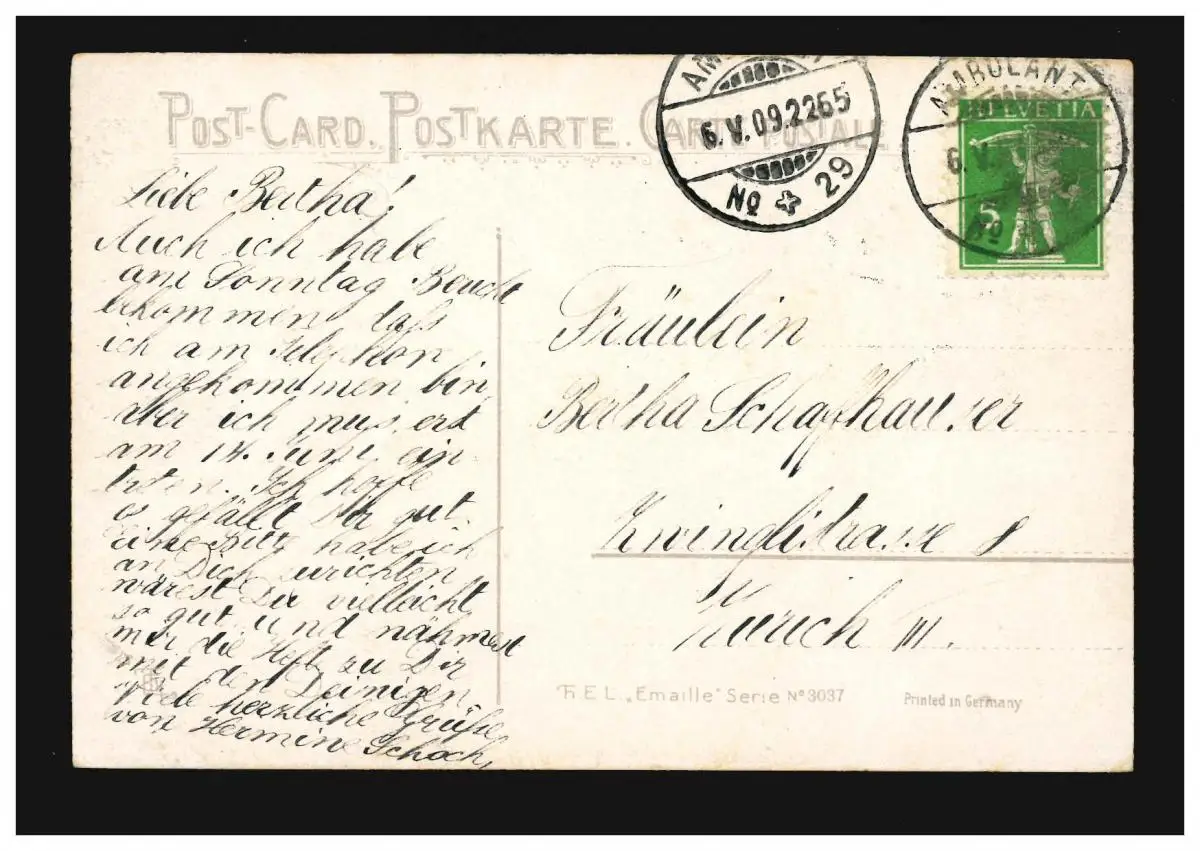 POST-CARD. POSTKARTE. CARTE POSTALE
AMBULANT
6.V.09.2265
No 29
AMBULANT
6.V.
No
HELVETIA
5
Liebe Bertha!
Auch ich habe
am Sonntag Bericht
bekommen dass
ich am Telephon
angekommen bin,
aber ich muss erst
am 14. Juni ein-
treten. Ich hoffe
es gefällt Dir gut.
Eine Bitte habe ich
an Dich zu richten
wärest Du vielleicht
so gut und nähmest
mir die Heft zu Dir
mit den Deinigen
Viele herzliche Grüße
von Hermine Schoch,
Fräulein
Bertha Schaffhauser
Zwinglistrasse 8
Zürich III.
"Emaille" Serie No 3037
Printed in Germany